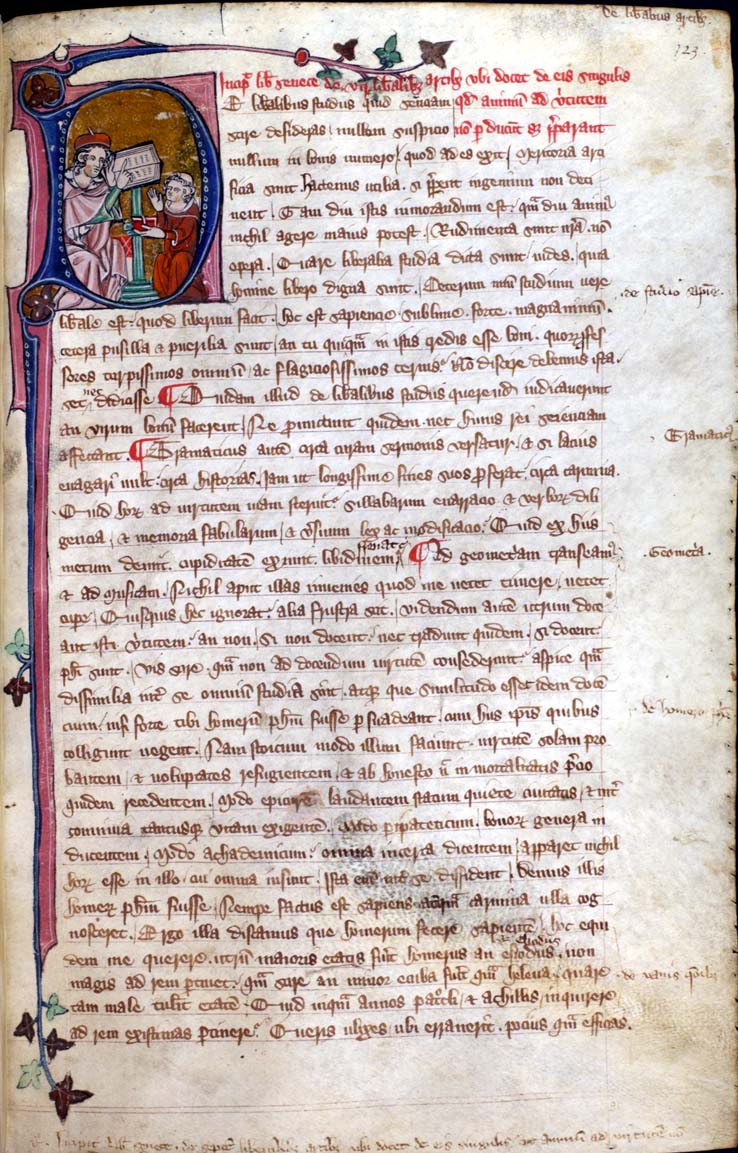 de lib̄alibus artib₃
123.
Incip̄ lib̄ senece de vij lib̄alib₃ artib₃ vbi docet de eis singulis
DE lib̄alibus studiis quid senciam qď animū ad v̓tutem
scire desideras / nullum suspicio nō p̱ducūt s₃ p̄parant
nullum in bonis numero / quod ad es exit / Meritoria arti
ficia sunt hactenus utilia. si p̄parāt ingenium non deti
nent / Tam diu istis inmorandum est. qm̄ diu animꝯ
nichil agere maius potest / Rudimenta sunt nr̄a. nō
opera / Quare liberalia studia dicta sunt uides / quia
homine libero digna sunt / Ceterum unū studium vere
lib̄ale est. quod liberum facit / hoc est sapiencie sublime. forte. magnanimū.
cetera pusilla & puerilia sunt / an tu quicq̄m in istis credis esse boni. quoꝝ ꝓfes
sores turpissimos omniū / ac flagiciosissimos cernis. Nō discere debemus ista.
set didicisse ¶ Quidam illud de lib̄alibus studiis querendū iudicauerunt
nos
an virum bonū facerent / Ne ꝓmittunt quidem. nec huius rei scienciam
affectant. ¶ Gramaticus autē circa curam sermonis versatur. & si lacius
euagari vult. circa historias. iam ut longissime fines suos ꝓferat. circa carmina.
Quid hoꝝ ad uirtutem uiam sternit. sillabarum enarracio & verboꝝ dili
gencia / & memoria fabularum / & v̓suum lex ac modificacio. Quid ex hiis
metum demit. cupiditatē eximit. libidinem
frenat
¶ Ad geometriam transeamꝯ
& ad Musicam. Nichil aput illas inuenies quod me uetet timere / uetet
cupe᷒ / Quisquis hec ignorat. alia frustra scit. videndum autē utrum doce
ant isti v̓tutem. an non. Si non docent. nec tradunt quidem. Si docent.
ph̄i sunt. Vis scire. qm̄ non ad docendum uirtutē consederint. aspice qm̄
dissimilia int̓ se omniū studia sint. atq̱ que similitudo esset idem docē
cium. nisi forte tibi homerū ph̄m fuisse p̱suadeant. cum hiis ip̄is quibus
colligunt negent / Nam stoicum modo illum faciunt. uirtutē solam pro
bantem / & uoluptates refugientem / & ab honesto ne in mortalitatis p̄cio
quidem recedentem. Modo epicureū laudantem statum quiete ciuitatis / & int̓
conuiuia cantusq̱ vitam exigentē. Modo p̱ipateticum / bonoꝝ genera in
ducentem. Modo achademicum. omnia incerta dicentem / apparet nichil
hoꝝ esse in illo. cui omnia insunt. Ista enī int̓ se dissident / Demus illis
homeꝝ ph̄m fuisse. Nempe factus est sapiens antequam carmina ulla cog
nosceret. Ergo illa discamus que homerum fecere sapientē / hoc equi
dem me querere. utrū maioris etatis fūit homerus an esiodus. non
magis ad rem p̱tinet. qm̄ scire an minor eciba fūit qm̄ helena. quare
tam male tulit etatē. Quid inqm̄ annos pat̓cli / & achillis / inquirere
ad rem existimas p̱tinere. Queris ulixes ubi errauerit. pocius qm̄ efficas.
de studio sapiē.
Gramaticꝯ
Geomet̓a.
de homero ph̄o
de vanis q̄onib₃
Incipit lib̄ senece. de septē liberalib₃ artib₃ vbi docet de eis singulis qď animum ad virtutē nō